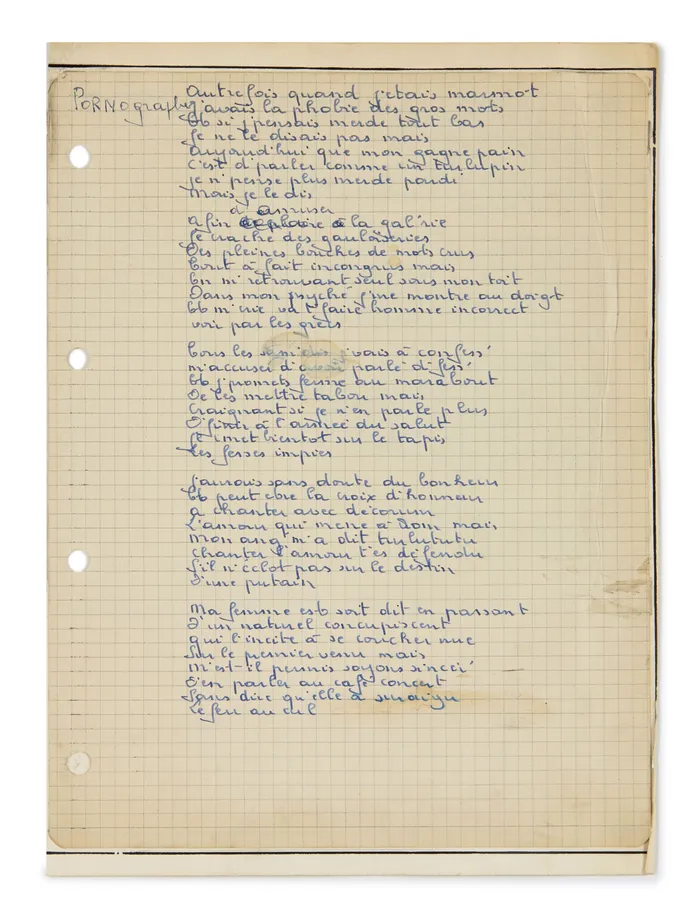 PORNography
Autrefois quand j'etais marmot
j'avais la phobie des gros mots
Et si j'pensais merde tout bas
Je ne le disais pas mais
Aujourd'hui que mon gagne pain
c'est d'parler comme un turlupin
je n'pense plus merde pardi
Mais je le dis
d'amuser
Afin de plaire à la gal'rie
Je crache des gauloiseries
Des pleines bouches de mots crus
Tout à fait incongrus mais
En m'retrouvant seul sous mon toit
Dans mon psyché j'me montre au doigt
Et m'crie va t'faire homme incorrect
voir par les grecs
Tous les sam'dis j'vais à confess'
m'accuser d'avoir parlé d'fess'
Et j'promets ferme au marabout
De les mettre tabou mais
Craignant si je n'en parle plus
D'finir à l'armée du salut
Je r'met bientot sur le tapis
Les fesses impies
j'aurais sans doute du bonheur
Et peut etre la croix d'honneur
A chanter avec décorum
L'amour qui mene à Rom mais
Mon ang' m'a dit turlututu
Chanter l'amour t'es défendu
S'il n'éclot pas sur le destin
D'une putain
Ma femme est soit dit en passant
D'un naturel concupiscent
qui l'incite à se coucher nue
Sur le premier venu mais
M'est-il permis soyons sincer'
D'en parler au café concert
Sans dire qu'elle a suraigu
Le feu au cul